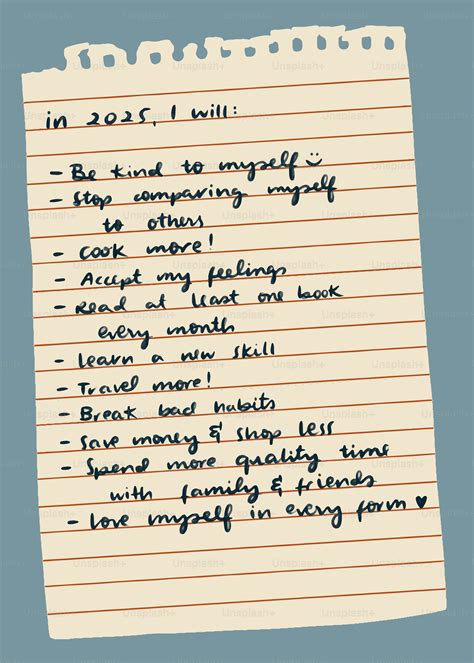 in 2025, I will:
- Be kind to myself ☺
- Stop comparing myself
to others
- Cook more!
- Accept my feelings
- Read at least one book
every month
- Learn a new skill
- Travel more!
- Break bad habits
- Save money & shop less
- Spend more quality time
with family & friends
- Love myself in every form ♥